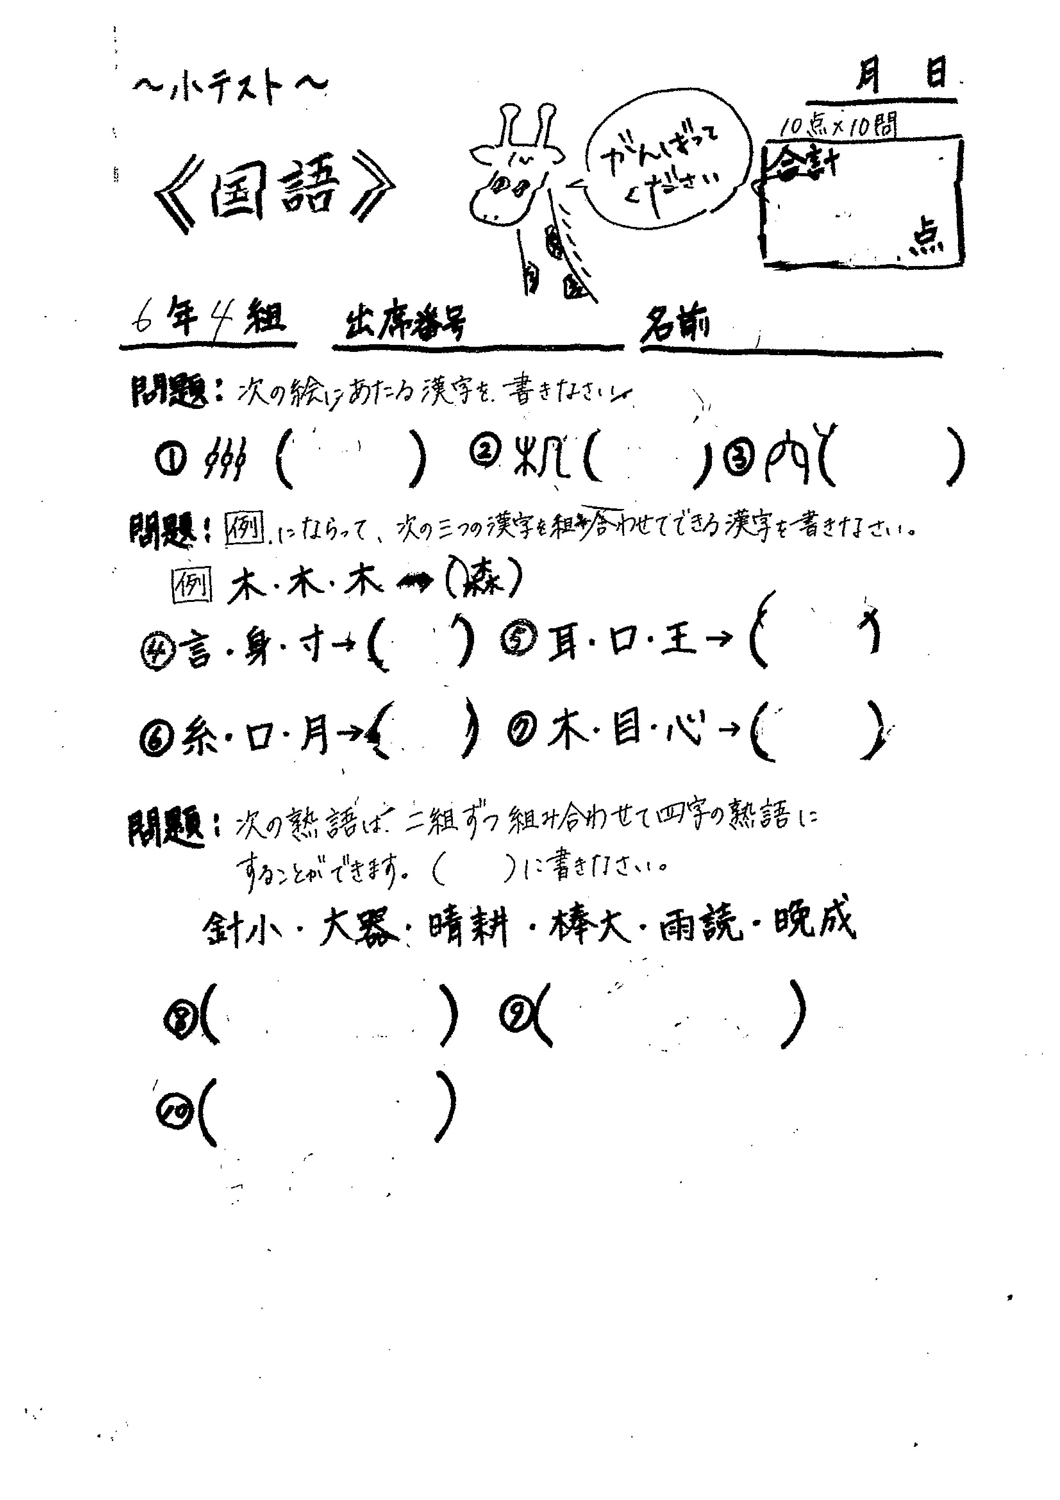 ～小テスト～
月 日
10点×10問
《国語》
がんばって
ください
合計
点
6年4組 出席番号 名前
問題：次の絵にあたる漢字を書きなさい。
① ( ) ② ( ) ③ ( )
問題：例にならって、次の三つの漢字を組み合わせてできる漢字を書きなさい。
例 木・木・木→(森)
④言・身・寸→( ) ⑤耳・口・王→( )
⑥糸・口・月→( ) ⑦木・目・心→( )
問題：次の熟語は、二組ずつ組み合わせて四字の熟語に
することができます。( )に書きなさい。
針小・大器・晴耕・棒大・雨読・晩成
⑧( ) ⑨( )
⑩( )